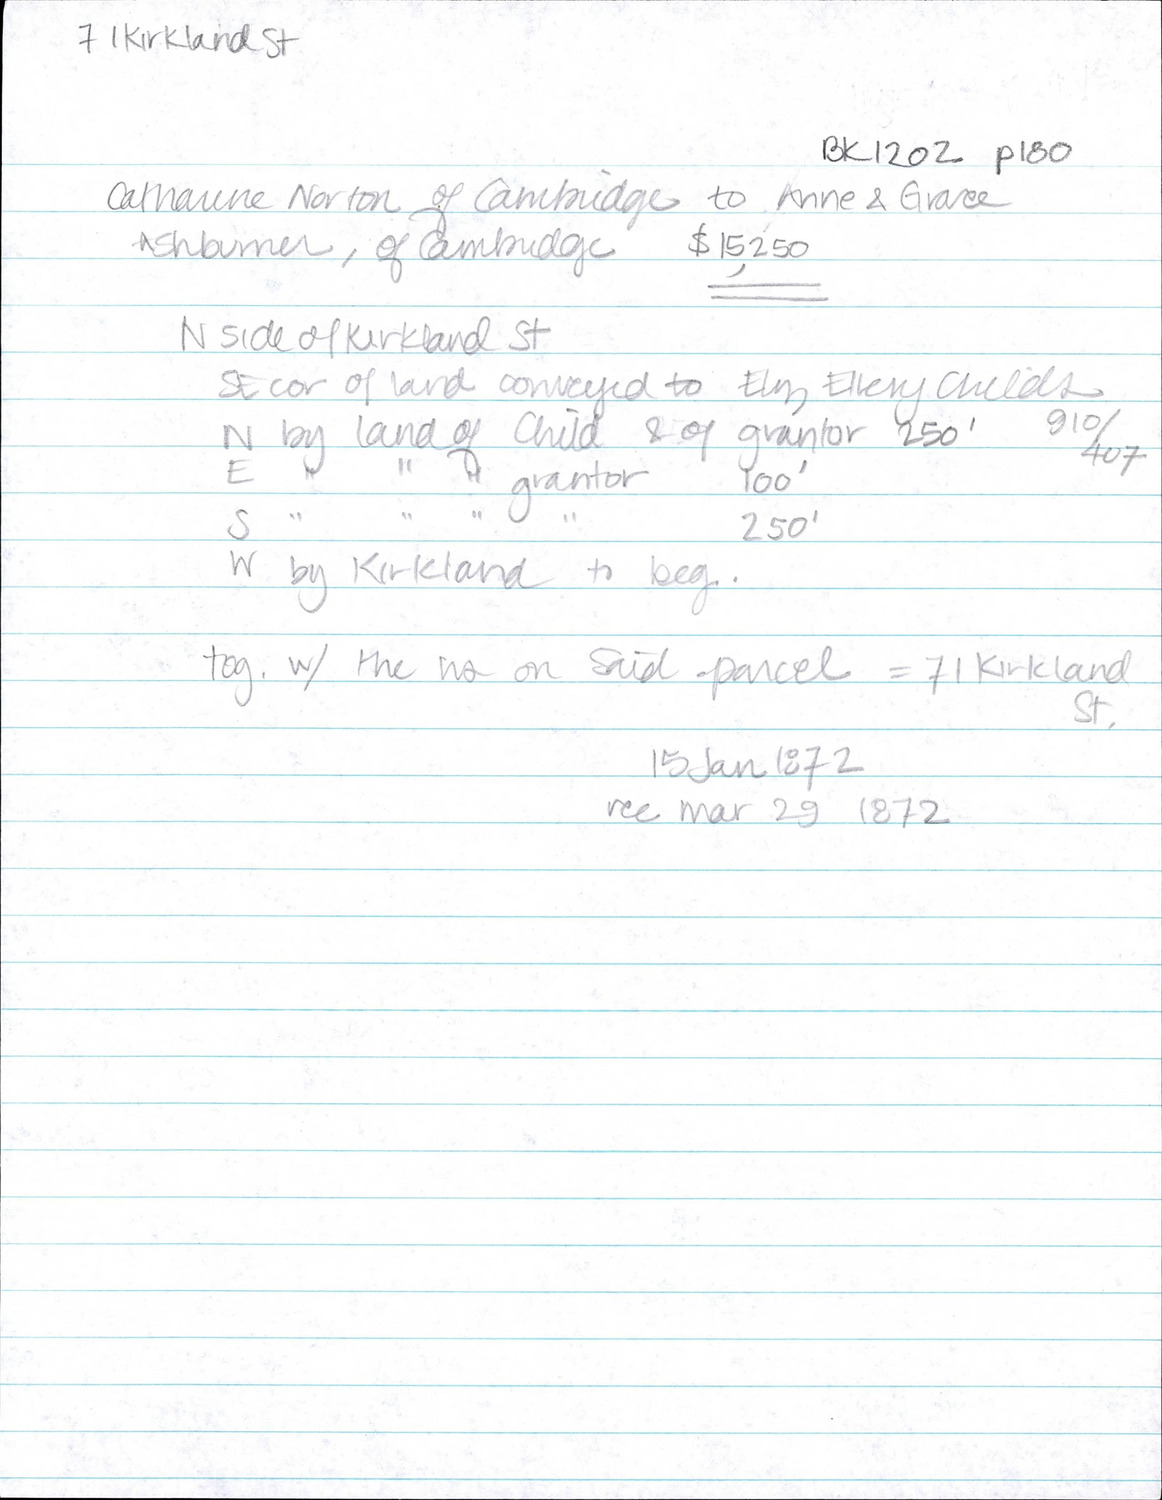 71 Kirkland St
BK 1202 p180
Catharine Norton of Cambridge to Anne & Grace
Ashburner, of Cambridge $15,250
N side of Kirkland St
SE cor of land conveyed to Eliz Ellery Childs
N by land of Child & of grantor 250' 910/
407
E " " " grantor 100'
S " " " " 250'
W by Kirkland to beg.
tog. w/ the hs on said parcel = 71 Kirkland
St.
15 Jan 1872
rec Mar 29 1872